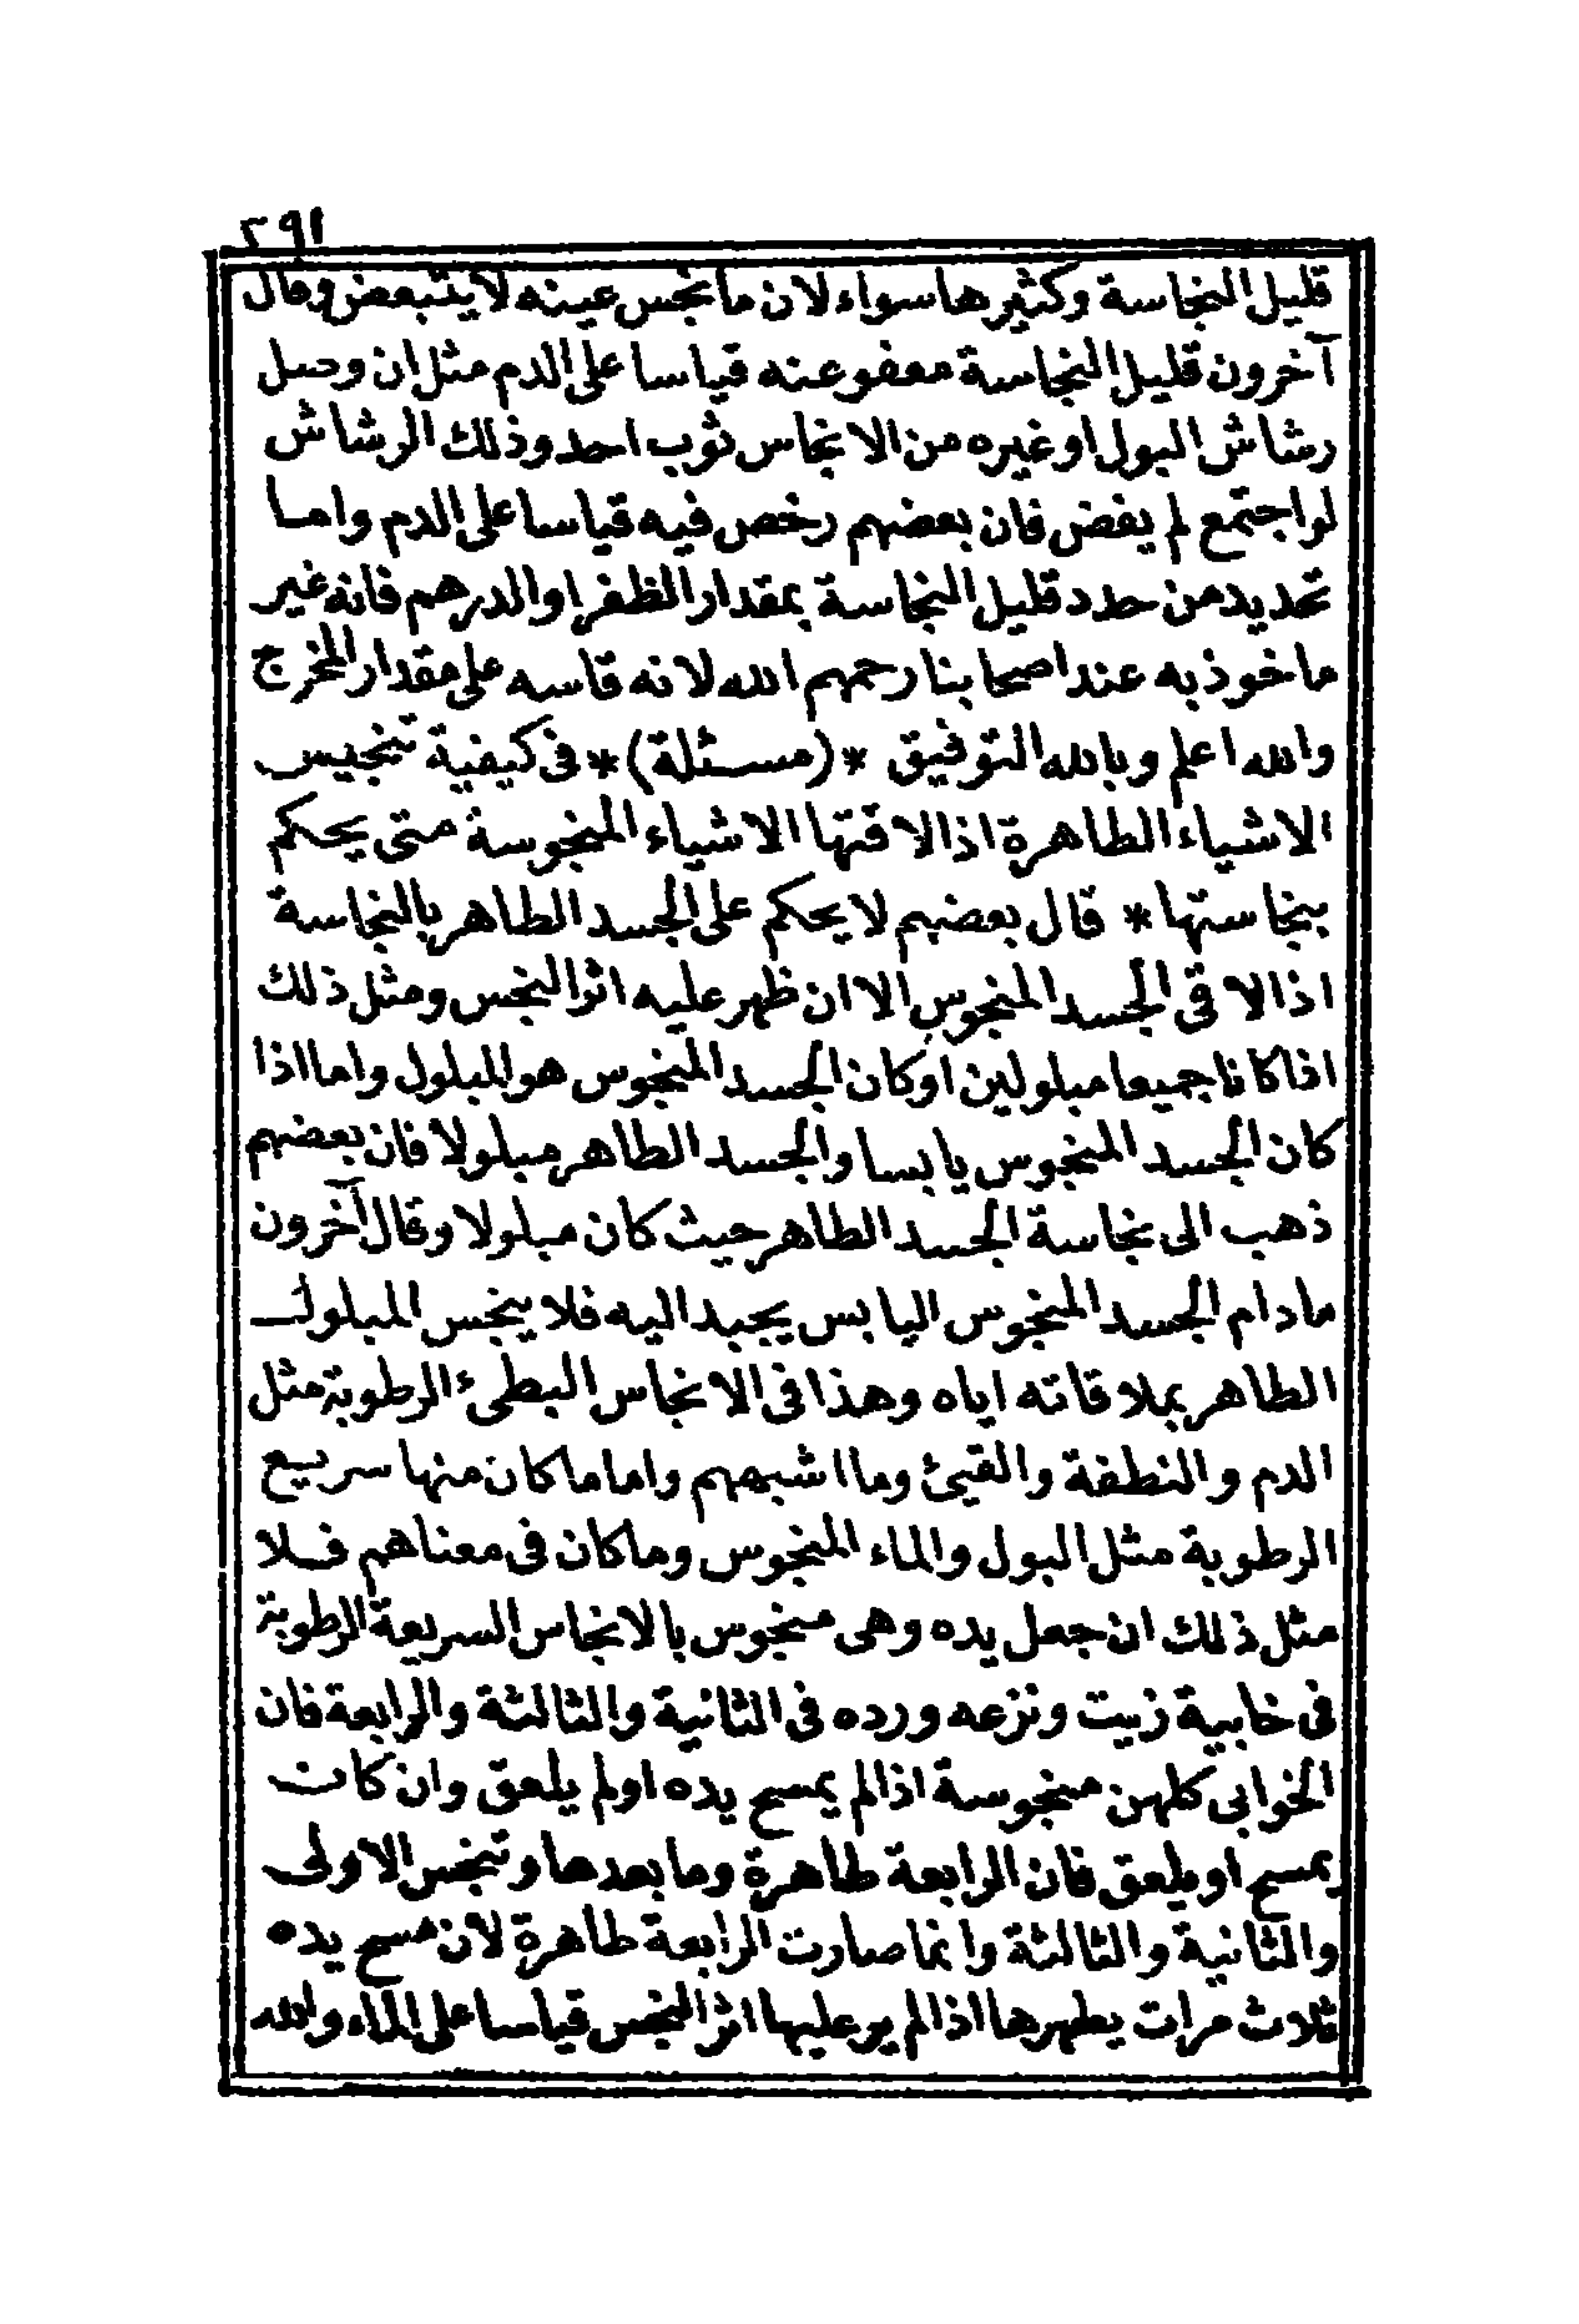 ٢٩١
قليل النجاسة وكثيرها سواء لان ما نجس عينه لا يتبعض وقال
آخرون قليل النجاسة معفو عنه قياسا على الدم مثل ان وصل
رشاش البول او غيره من الانجاس ثوب احد وذلك الرشاش
لو اجتمع لم يفض فان بعضهم رخص فيه قياسا على الدم واما
تحديد من حدد قليل النجاسة بمقدار الظفر او الدرهم فانه غير
ماخوذ به عند اصحابنا رحمهم الله لانه قاسه على مقدار المخرج
والله اعلم وبالله التوفيق * (مسئلة) * فى كيفية تنجيس
الاشياء الطاهرة اذا لاقتها الاشياء المنجوسة متى يحكم
بنجاستها * قال بعضهم لا يحكم على الجسد الطاهر بالنجاسة
اذا لاقى الجسد المنجوس الا ان ظهر عليه اثر النجس ومثل ذلك
اذا كانا جميعا مبلولين او كان الجسد المنجوس هو المبلول واما اذا
كان الجسد المنجوس يابسا والجسد الطاهر مبلولا فان بعضهم
ذهب الى نجاسة الجسد الطاهر حيث كان مبلولا وقال آخرون
مادام الجسد المنجوس اليابس يجبد اليه فلا ينجس المبلول
الطاهر بملاقاته اياه وهذا فى الانجاس البطىء الرطوبة مثل
الدم والنطفة والقيئ وما اشبههم واما ما كان منها سريع
الرطوبة مثل البول والماء المنجوس وما كان فى معناهم فلا
مثل ذلك ان جعل يده وهى منجوس بالانجاس السريعة الرطوبة
فى خابية زيت ونزعه ورده فى الثانية والثالثة والرابعة فان
الخوابى كلهن منجوسة اذا لم يمسح يده او لم يلعق وان كان
يمسح او يلعق فان الرابعة طاهرة وما بعدها وتنجس الاولى
والثانية والثالثة وانما صارت الرابعة طاهرة لان مسح يده
ثلاث مرات يطهرها اذا لم ير عليها اثر النجس قياسا على الماء والله